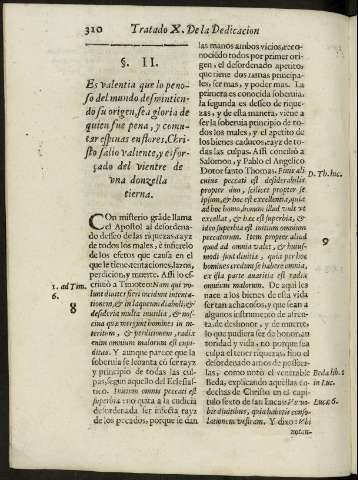 310 Tratado X. De la Dedicacion
§. II.
Es valentia que lo peno-
so del mundo desmintien-
do su origen, sea gloria de
quien fue pena, y conmu-
tar espinas en flores, Chri-
sto salio valiente, y esfor-
çado del vientre de
vna donzella
tierna.
COn misterio grãde llama
el Apostol al desordena-
do desseo de las riquezas, rayz
de todos los males, è infierelo
de los efetos que causa en el
que le tiene, tentaciones, lazos,
perdicion, y muerte. Assi lo es-
criuiò a Timoteo: Nam qui vo-
1. ad Tim. 6.
lunt diuites fieri incidunt in tenta-
tionem, & in laqueum diaboli, &
8
desideria multa inutilia, & no-
ciua quæ mergunt homines in in-
teritum, & perditionem, radix
enim omnium malorum est cupi-
ditas. Y aunque parece que la
soberuia se leuanta cõ ser rayz
y principio de todas las cul-
pas, segun aquello del Eclesias-
tico. Initium omnis peccati est
superbia: no quita a la cudicia
desordenada ser infecta rayz
de los pecados, porque se dan
las manos ambos vicios, reco-
nociẽdo todos por primer ori-
gen, el desordenado apetito,
que tiene dos ramas principa-
les, ser mas, y poder mas. La
primera es conocida soberuia,
la segunda es desseo de rique-
zas, y de esta manera, viene a
ser la soberuia principio de to-
dos los males, y el apetito de
los bienes caducos, rayz de to-
das las culpas. Assi concilió a
Salomon, y Pablo el Angelico
Dotor santo Thomas. Finis ali
D. Th. hic.
cuius peccati est desiderabilis
propter duo, scilicet propter se
ipsum, & hoc est excellentia, quia
ad hoc homo bonum illud vult vt
excellat, & hæc est superbia, &
ideo superbia est initium omnium
peccatorum. Item propter aliud
9
quod ad omnia valet, & huius-
modi sunt diuitiæ, quia per hoc
homines credunt se habere omnia,
ex ista parte auaritia est radix
omnium malorum. De aqui les
nace a los bienes de esta vida
ser tan achacosos, y que sean a
algunos instrumento de afren-
ta, de deshonor, y de muerte,
lo que pudiera ser de honor, au-
toridad y vida, no porque sea
culpa el tener riquezas, sino el
desordenado amor de posseer-
las, como notò el venerable
Beda lib. 2 in Luc.
Beda, explicando aquellas co-
dechas de Christo en el capi-
tulo sexto de san Lucas: Væ vo-
Lucæ 6.
bis diuitibus, quia habetis conso-
lationem vestram. Y dixo: Vbi
notan-